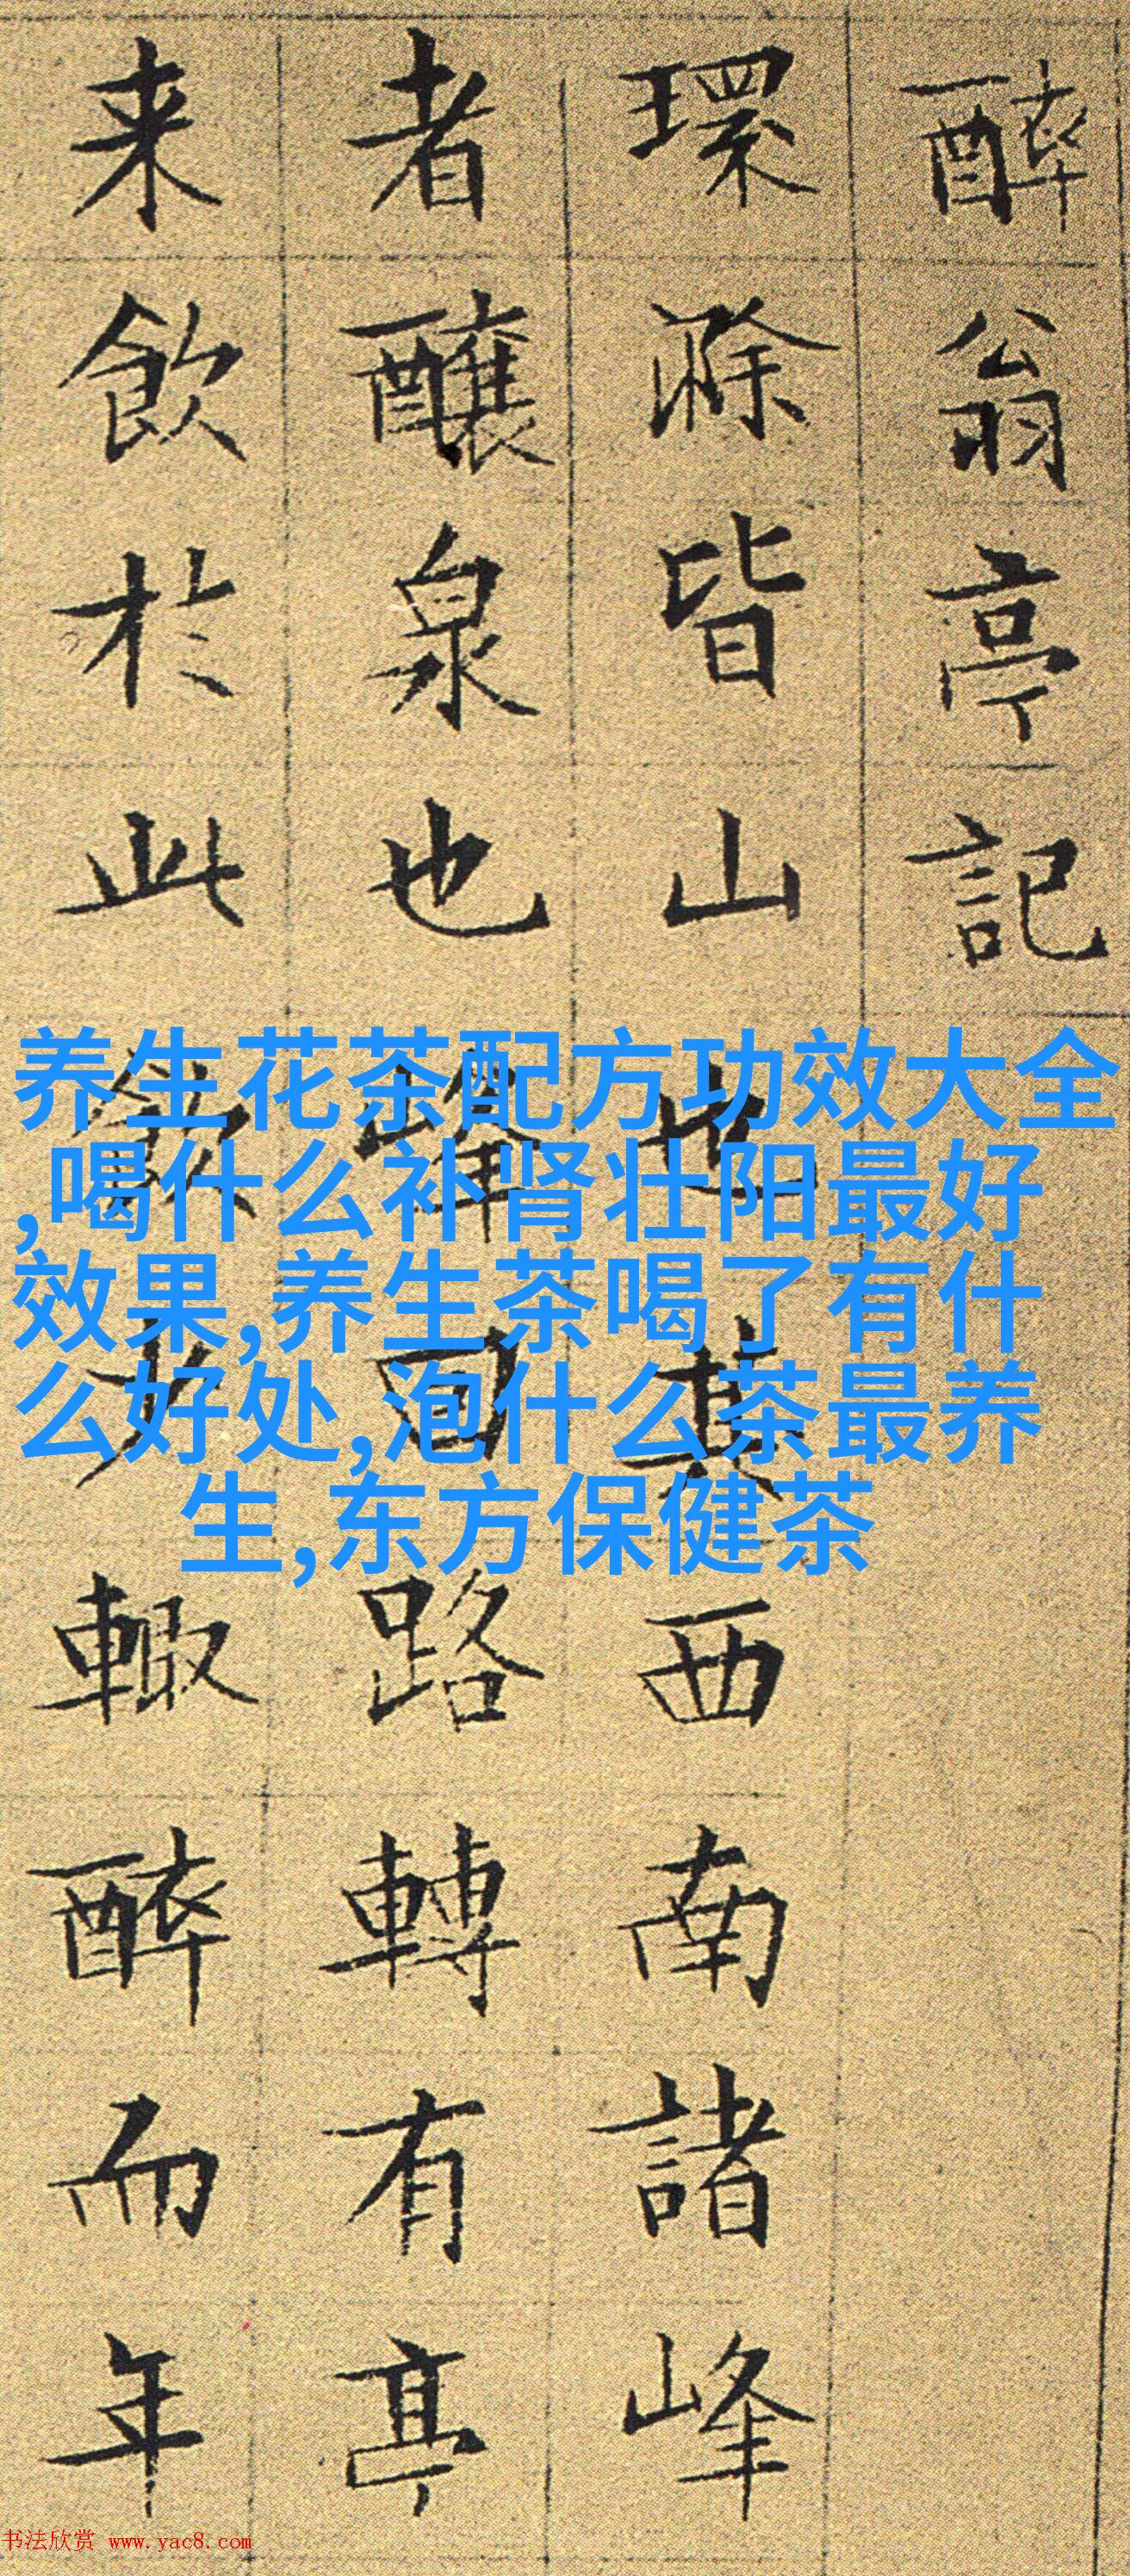 醉翁亭記
環滁皆山也其西南諸峰
者釀泉也回路轉有亭
来飲於此輒醉而年
养生花茶配方功效大全
,喝什么补肾壮阳最好
效果,养生茶喝了有什
么好处,泡什么茶最养
生,东方保健茶
书法欣赏 www.yac8.com